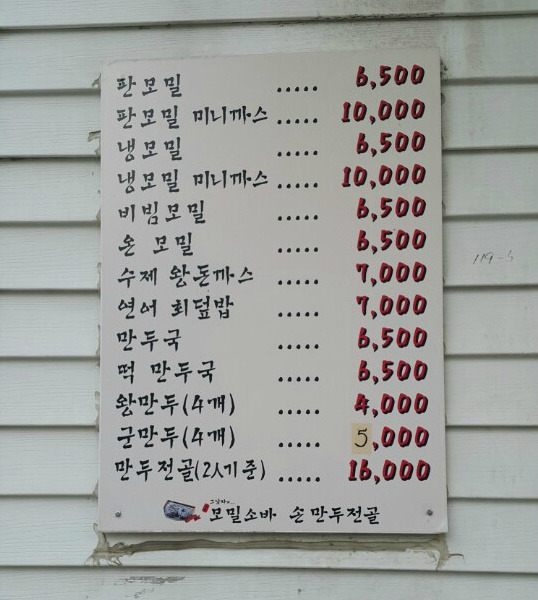 판모밀 ..... 6,500
판모밀 미니까스 ..... 10,000
냉모밀 ..... 6,500
냉모밀 미니까스 ..... 10,000
비빔모밀 ..... 6,500
온 모밀 ..... 6,500
수제 왕돈까스 ..... 7,000
연어 회덮밥 ..... 7,000
만두국 ..... 6,500
떡 만두국 ..... 6,500
왕만두(4개) ..... 4,000
군만두(4개) ..... 5,000
만두전골(2人기준) ..... 16,000
모밀소바 손만두전골